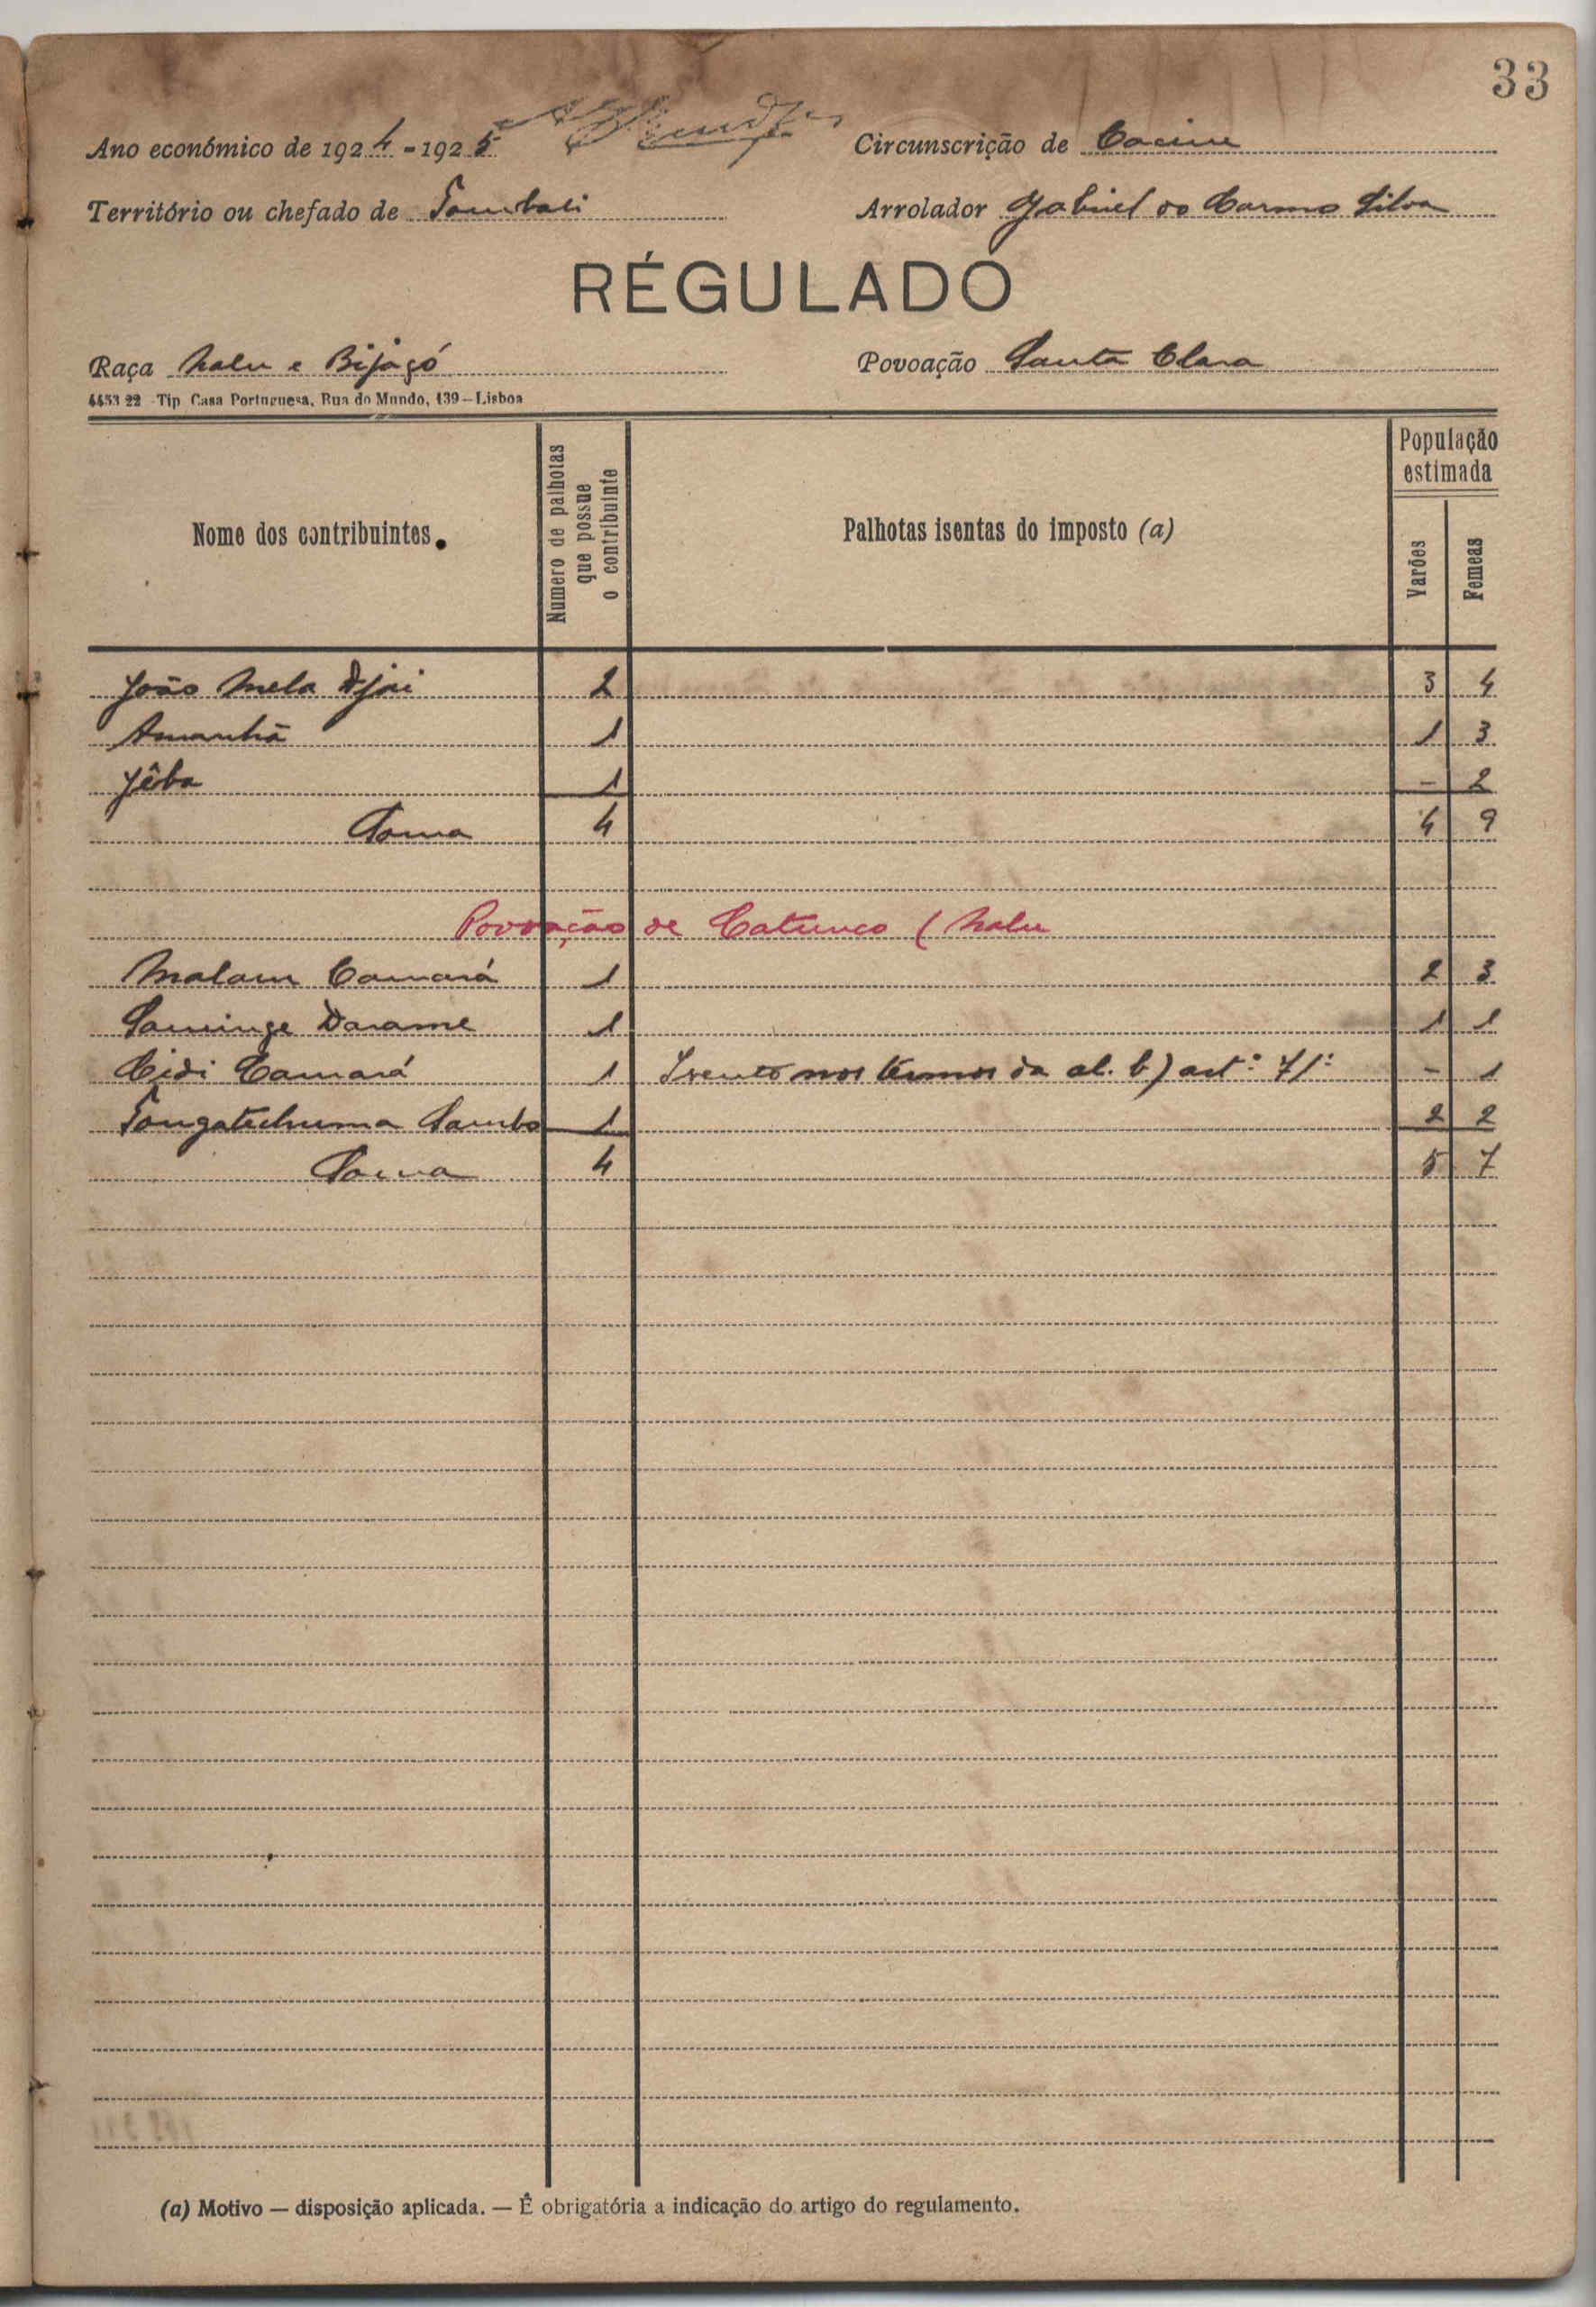 33
Ano económico de 1924-1925 Circunscrição de Cacine
Território ou chefado de Tombali Arrolador Gabriel do Carmo Silva
RÉGULADO
Raça Nalu e Bijagó Povoação Santa Clara
4453 22 Tip Casa Portuguesa, Rua do Mundo, 139—Lisboa
Nome dos contribuintes. Numero de palhotas que possue o contribuinte Palhotas isentas do imposto (a) População estimada Varões Femeas
João Mela Djai 2 3 4
Amanhã 1 1 3
Jêba 1 - 2
Soma 4 4 9
Povoação de Catunco (Nalu
Malam Camará 1 2 3
Daramé 1 1 1
Cidi Camará 1 Isento nos termos da al. b) artº 71º - 1
Sambo 1 2 2
Soma 4 5 7
(a) Motivo — disposição aplicada. — É obrigatória a indicação do artigo do regulamento.